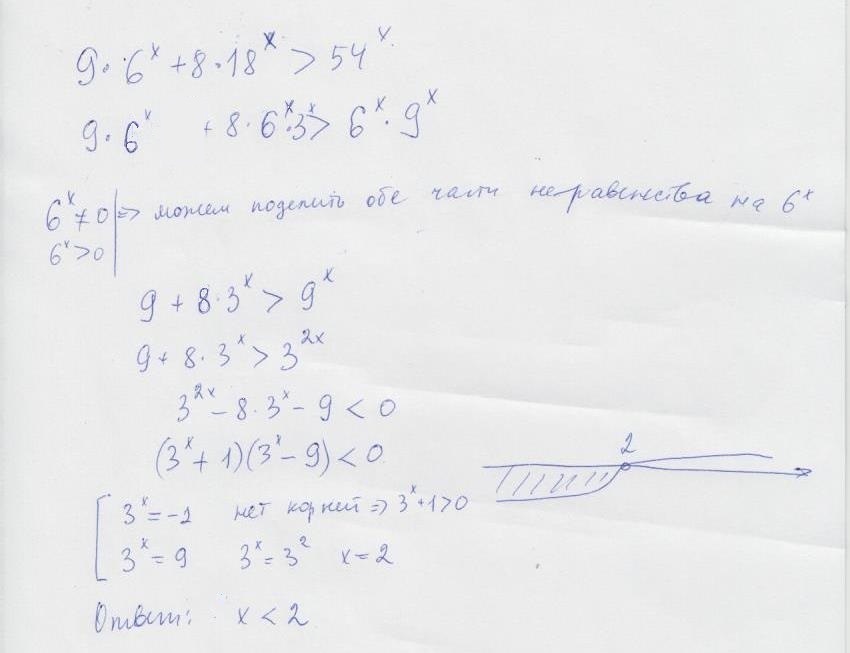 9·6^x + 8·18^x > 54^x
9·6^x + 8·6^x·3^x > 6^x·9^x
6^x ≠ 0 | => можем поделить обе части неравенства на 6^x
6^x > 0
9 + 8·3^x > 9^x
9 + 8·3^x > 3^{2x}
3^{2x} - 8·3^x - 9 < 0
(3^x + 1)(3^x - 9) < 0
2
[ 3^x = -1 нет корней => 3^x + 1 > 0
3^x = 9 3^x = 3^2 x = 2
Ответ: x < 2